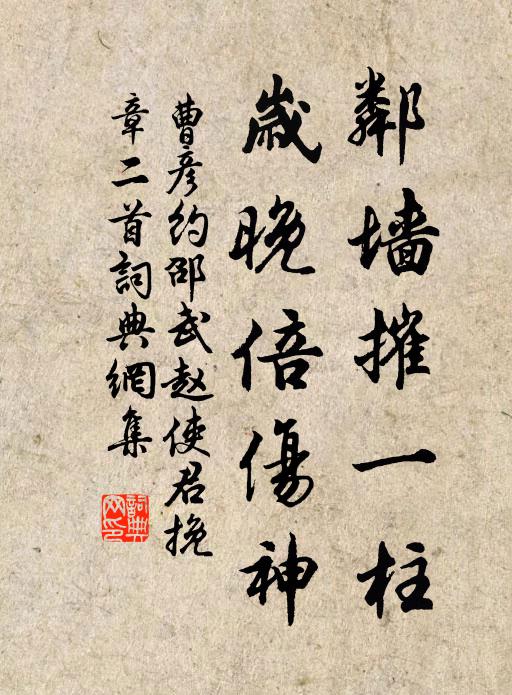 鄰墙摧一柱
歲晚倍傷神
曹彦約邵武赵使君挽
章二首詞典網集
詞典網印